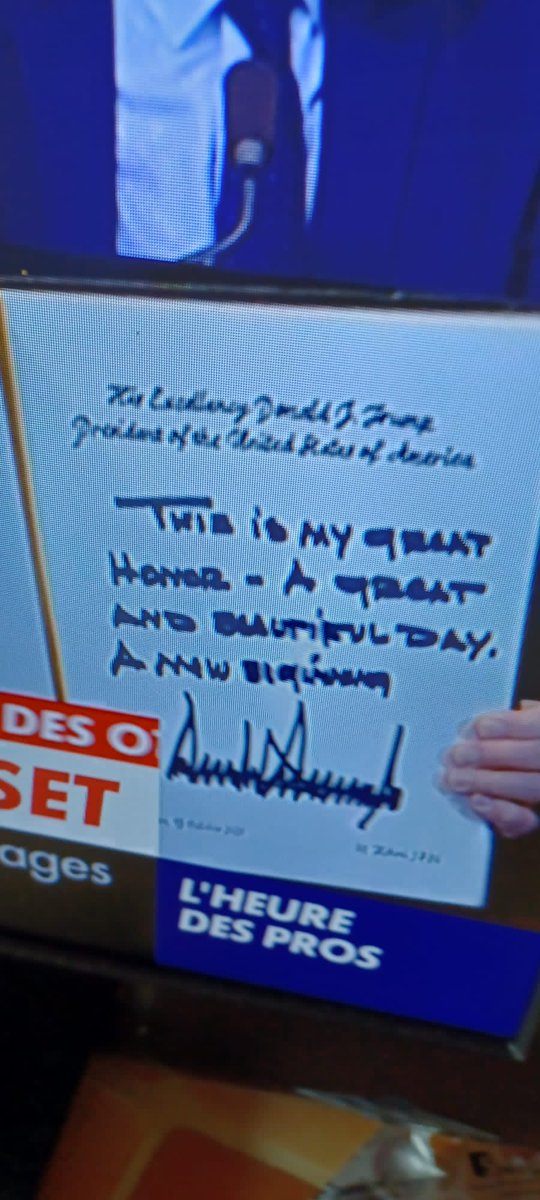 His Excellency Donald J. Trump
President of the United States of America
THIS is MY GREAT
HONOR - A GREAT
AND BEAUTIFUL DAY.
A NEW BEGINNING
DES O
SET
ages
L'HEURE
DES PROS